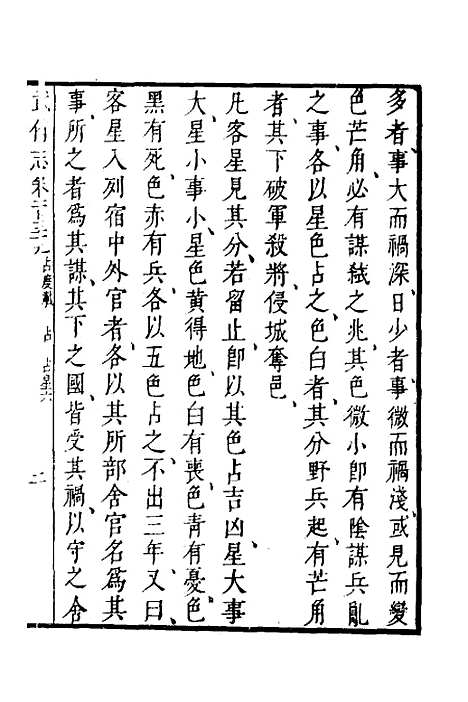 多者事大而禍深、日少者事微而禍淺、或見而變
色芒角、必有謀弒之兆、其色微小、卽有陰謀兵亂
之事、各以星色占之、色白者、其分野兵起、有芒角
者、其下破軍殺將、侵城奪邑、
凡客星見其分、若留止、卽以其色占吉凶、星大事
大、星小事小、星色黃得地、色白有喪、色青有憂、色
黑有死、色赤有兵、各以五色占之、不出三年、又曰、
客星入列宿中外官者、各以其所部舍官名爲其
事、所之者爲其謀、其下之國、皆受其禍、以守之舍
武備志卷一百三十九 占度載 占 占星六 二